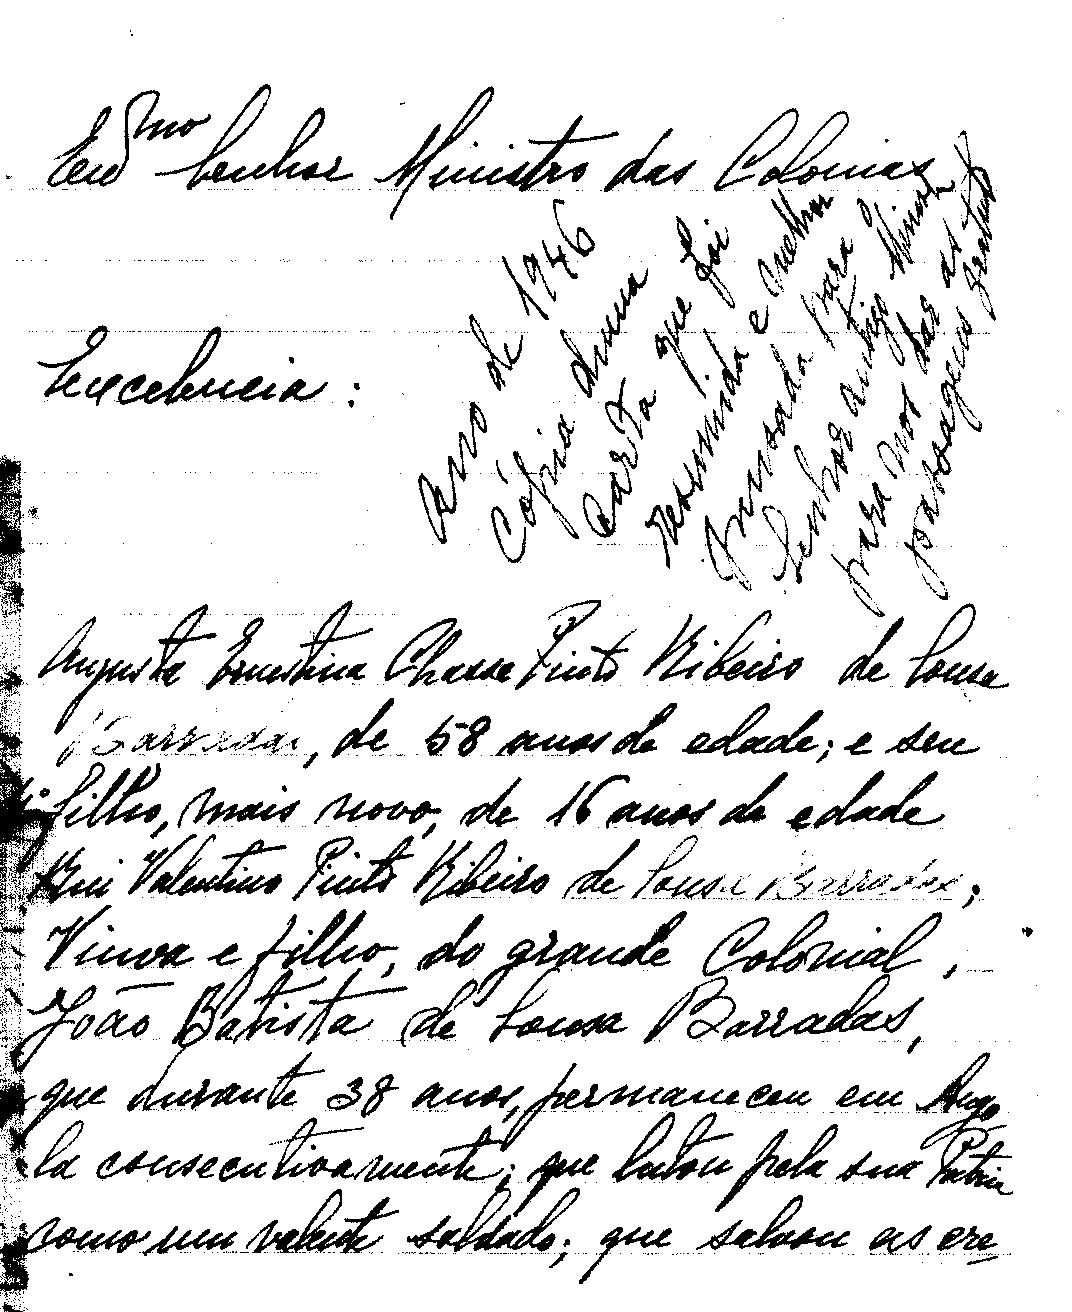 Exmo Senhor Ministro das Colonias
Ano de 1946
Cópia duma
carta que foi
resumida e melhor
pensada para o
Senhor antigo Ministro
para nos dar as
passagens gratuitas
Excelencia:
Augusta Ernestina Chasse Pinto Ribeiro de Sousa
Barradas, de 58 anos de edade; e seu
filho, mais novo, de 16 anos de edade
Rui Valentino Pinto Ribeiro de Sousa Barradas;
Viuva e filho, do grande Colonial,
João Batista de Sousa Barradas,
que durante 38 anos, permaneceu em Ango
la consecutivamente; que lutou pela sua Patria
como um valente soldado; que salvou as cre